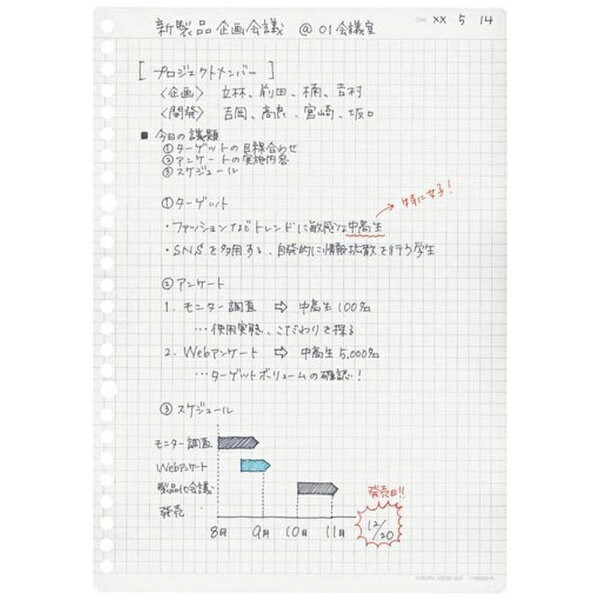 新製品企画会議 @01会議室
XX 5 14
[プロジェクトメンバー]
〈企画〉 立林、前田、楠、吉村
〈開発〉 吉岡、高、宮崎、坂口
■ 今日の議題
①ターゲットの目線合わせ
②アンケートの実施内容
③スケジュール
①ターゲット
特に女子!
・ファッションなどトレンドに敏感な中高生
・SNSを多用する、自発的に情報拡散を行う学生
②アンケート
1. モニター調査 ⇨ 中高生100名
…使用実態、こだわりを探る
2. Webアンケート ⇨ 中高生5,000名
…ターゲットボリュームの確認!
③スケジュール
モニター調査
Webアンケート
製品化会議
発売日!!
発売
12/20
8月 9月 10月 11月